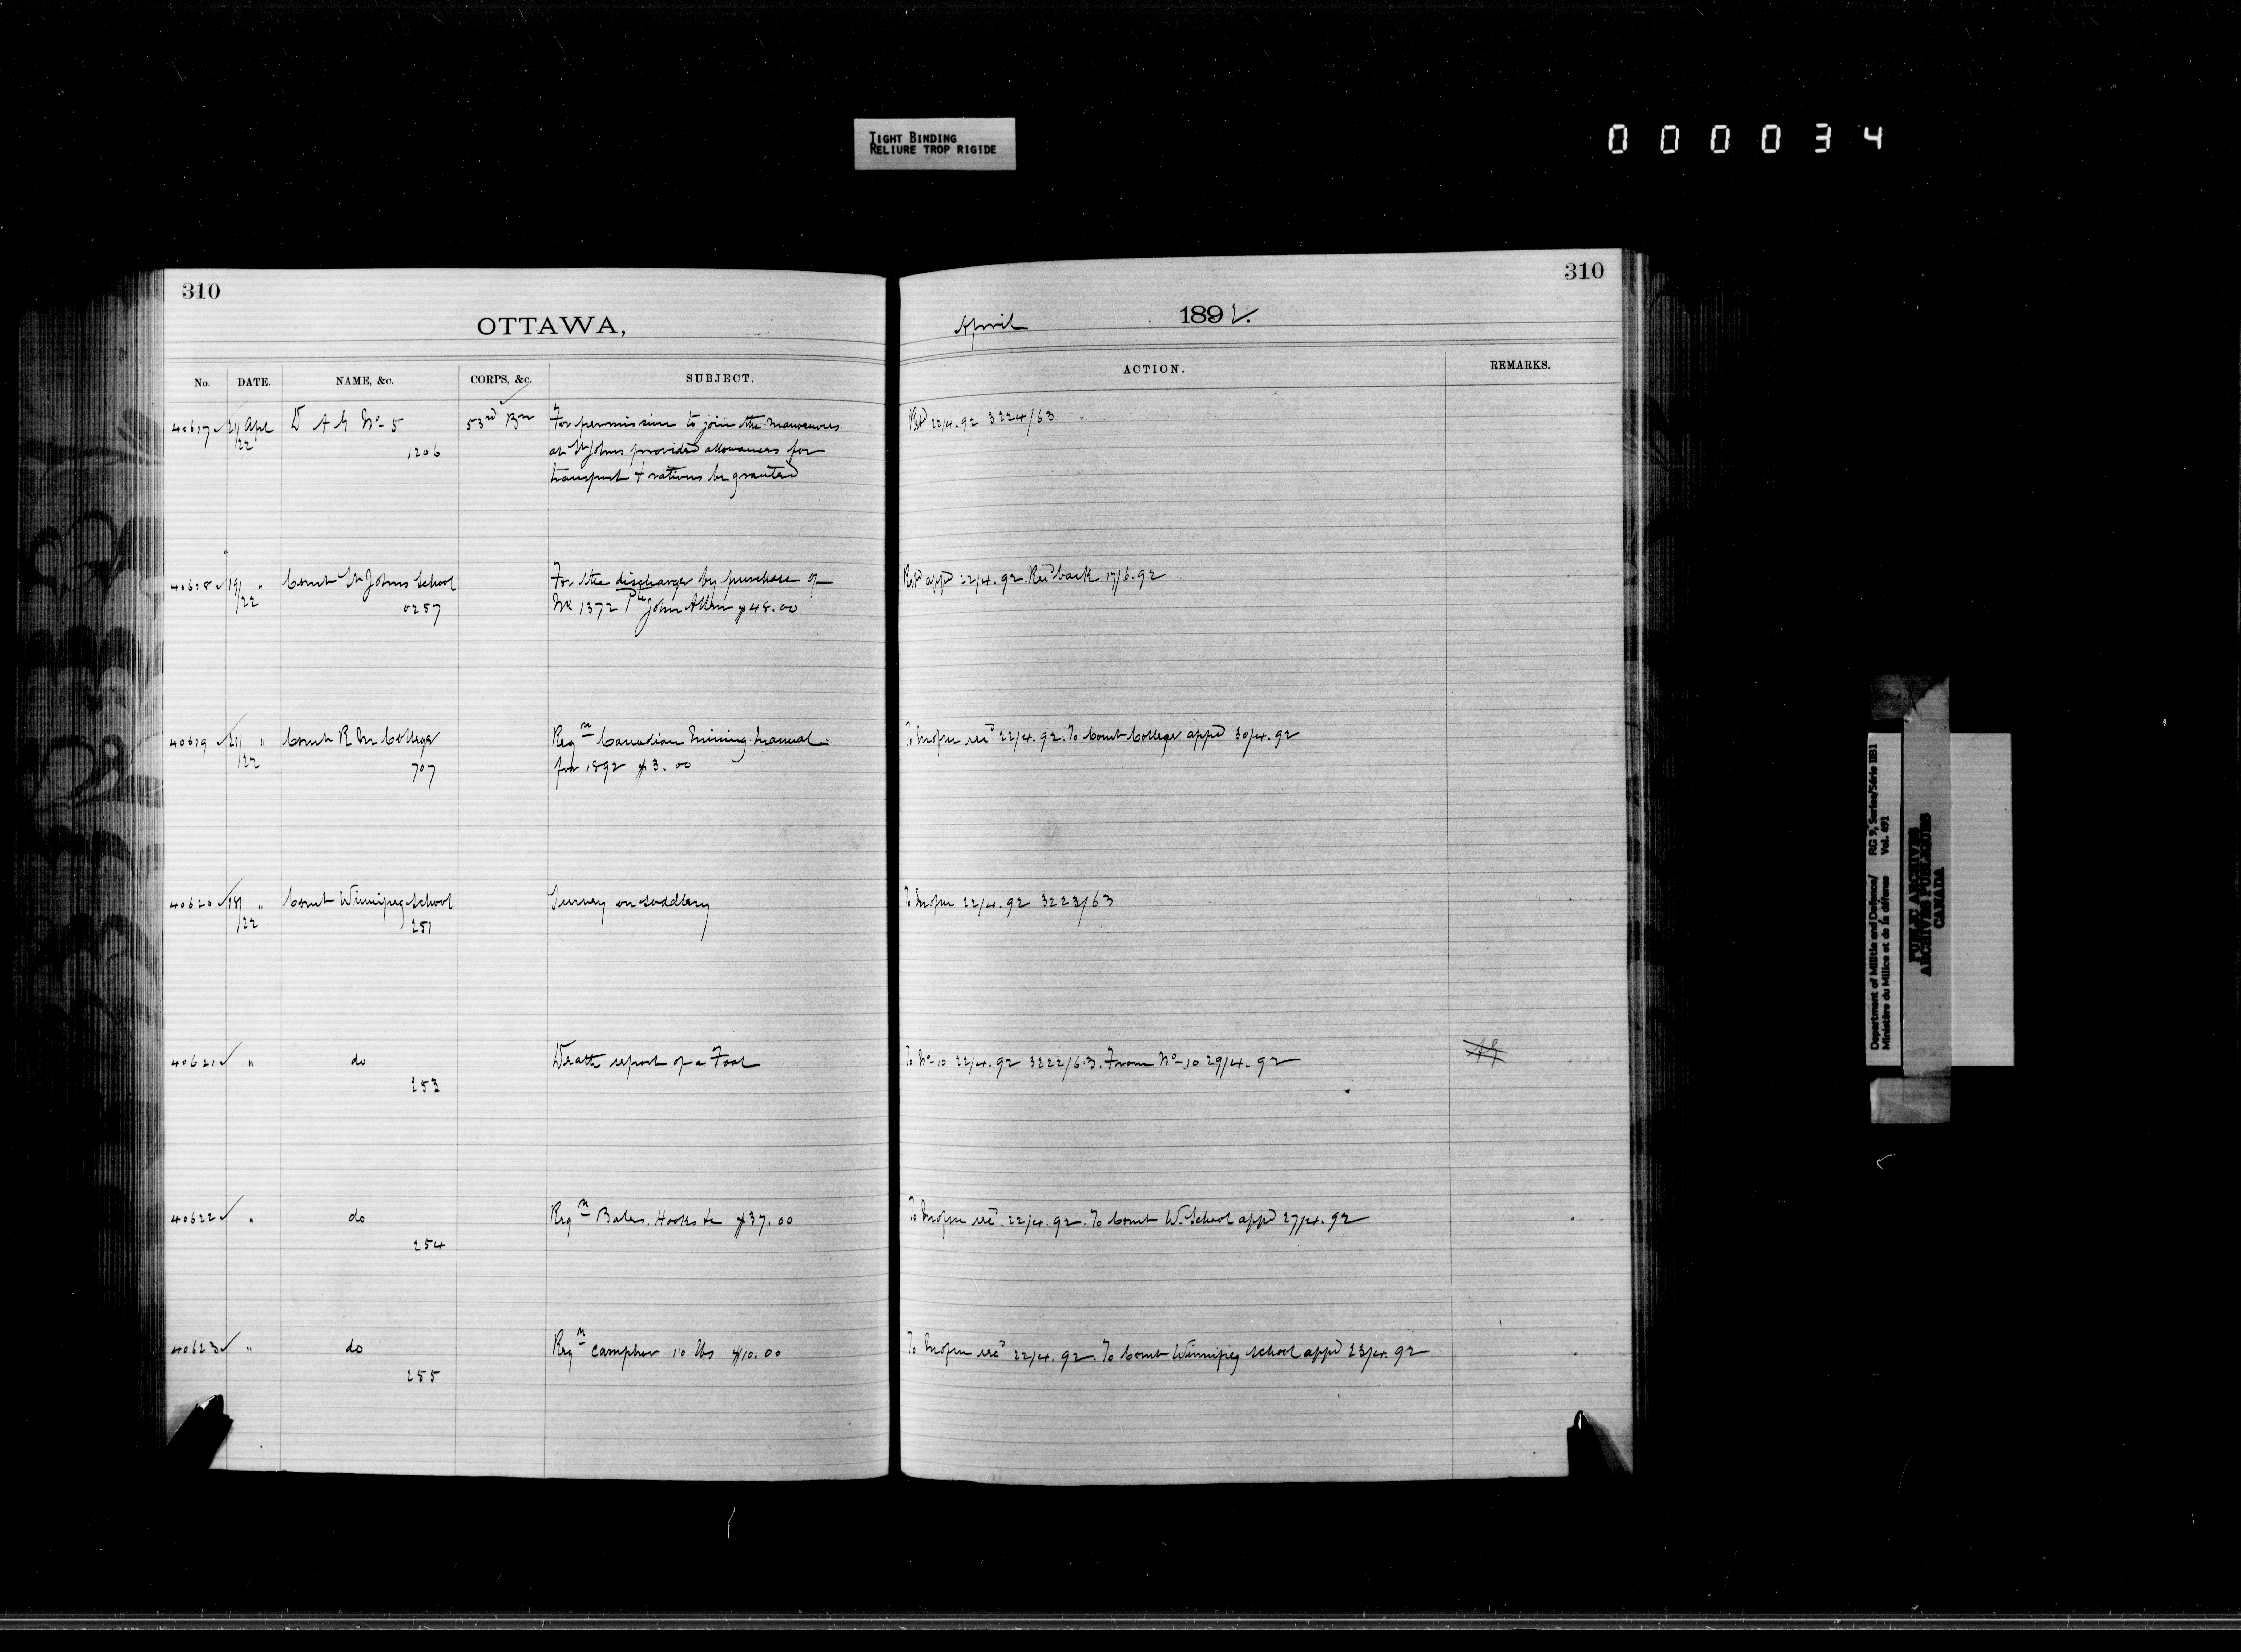 TIGHT BINDING
RELIURE TROP RIGIDE
000034
310
310
OTTAWA,
April 1892.
No. DATE. NAME, &c. CORPS, &c. SUBJECT. ACTION. REMARKS.
40617 21/22 Apl D A G No 5 53rd Bn For permission to join the manœuvres Retd 22/4.92 3224/63
1206 at St Johns provided allowances for
transport & rations be granted
40618 19/22 " Comt St Johns School For the discharge by purchase of Retd appd 22/4.92. Recd back 17/6.92
0257 No 1372 Pte John Allen $48.00
40619 21/22 " Comt R M College Reqn Canadian Mining Manual To recd 22/4.92. To Comt College appd 30/4.92
707 for 1892 $3.00
40620 18/22 " Comt Winnipeg School Survey on saddlery To 22/4.92 3223/63
251
40621 " do Death report of a Foal To No 10 22/4.92 3222/63. From No 10 29/4.92
253
40622 " do Reqn Bales, Hooks &c $37.00 To recd 22/4.92. To Comt W. School appd 27/4.92
254
40623 " do Reqn camphor 10 lbs $10.00 To recd 22/4.92. To Comt Winnipeg School appd 23/4.92
255
Department of Militia and Defence/ RG 9, Series/Série IIB1
Ministère du Milice et de la défense Vol. 491
PUBLIC ARCHIVES
ARCHIVES PUBLIQUES
CANADA